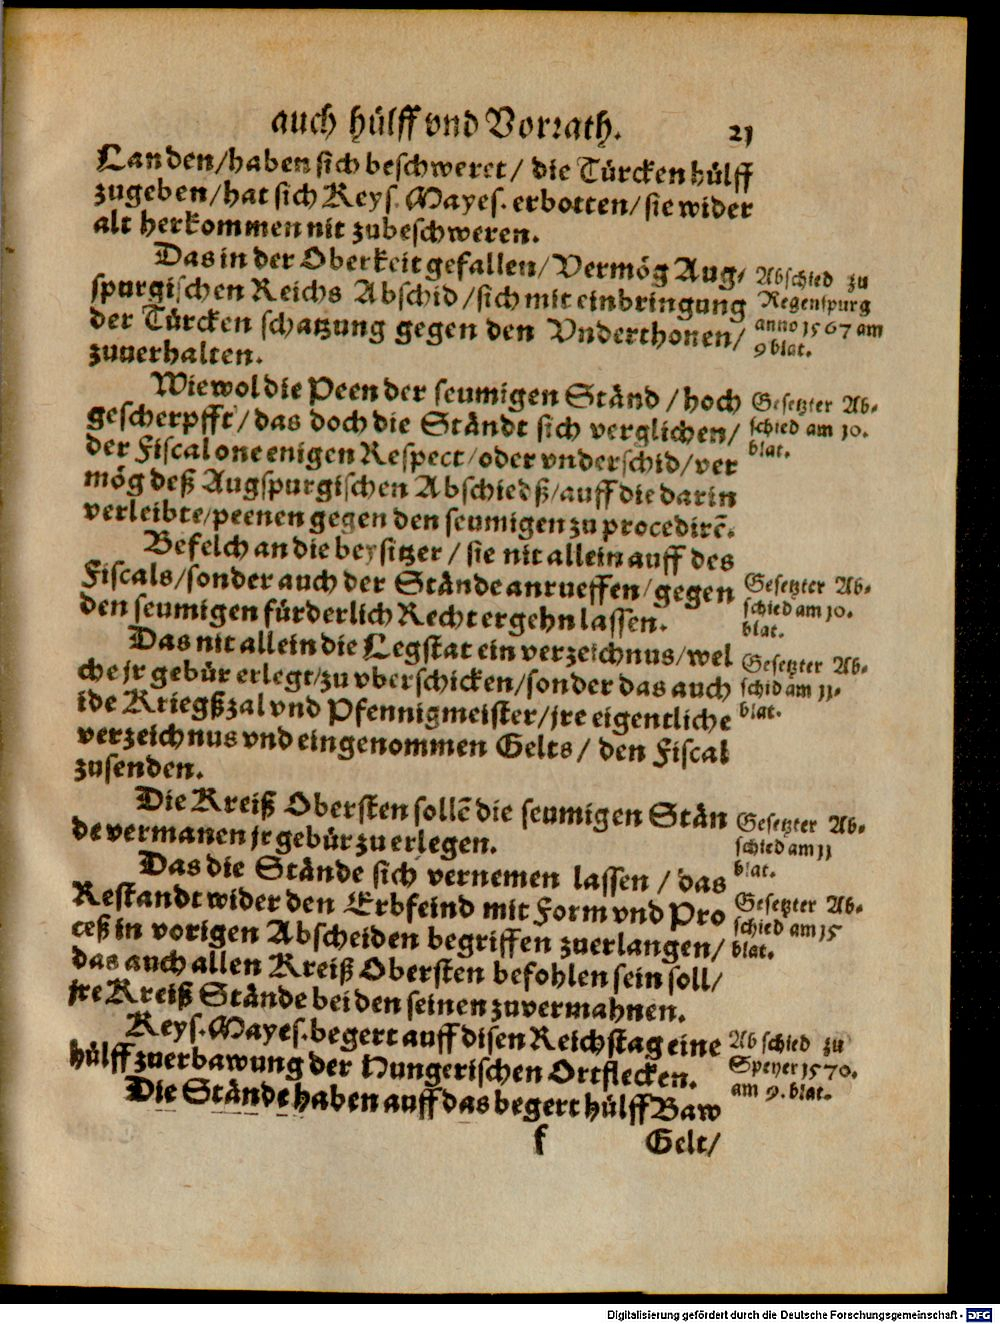 auch hülff vnd Vorrath. 21
Landen/haben sich beschweret/ die Türcken hülff
zugeben/hat sich Keys. Mayes. erbotten/sie wider
alt herkommen nit zubeschweren.
Das in der Oberkeit gefallen/Vermög Aug-
spurgischen Reichs Abschid/sich mit einbringung
der Türcken schatzung gegen den Vnderthonen/
zuuerhalten.
Abschied zu
Regenspurg
anno 1567 am
9 blat.
Wiewol die Peen der seumigen Ständ/hoch
gescherpfft/das doch die Ständt sich verglichen/
der Fiscal one enigen Respect/oder vnderschid/ver
mög deß Augspurgischen Abschiedß/auff die darin
verleibte/peenen gegen den seumigen zu procedirē.
Gesetzter Ab-
schied am 10.
blat.
Befelch an die beysitzer/sie nit allein auff des
Fiscals/sonder auch der Stände anrueffen/gegen
den seumigen fürderlich Recht ergehn lassen.
Gesetzter Ab-
schied am 10.
blat.
Das nit allein die Legstat ein verzeichnus/wel
che jr gebür erlegt/zu vberschicken/sonder das auch
ide Kriegßzal vnd Pfennigmeister/jre eigentliche
verzeichnus vnd eingenommen Gelts/ den Fiscal
zusenden.
Gesetzter Ab-
schid am 11.
blat.
Die Kreiß Obersten sollē die seumigen Stän
de vermanen jr gebür zu erlegen.
Gesetzter Ab-
schied am 11
blat.
Das die Stände sich vernemen lassen/das
Restandt wider den Erbfeind mit Form vnd Pro
ceß in vorigen Abscheiden begriffen zuerlangen/
das auch allen Kreiß Obersten befohlen sein soll/
jre Kreiß Stände bei den seinen zuvermahnen.
Gesetzter Ab-
schied am 15
blat.
Keys. Mayes. begert auff disen Reichstag eine
hülff zuerbawung der Hungerischen Ortflecken.
Die Stände haben auff das begert hülff Baw
Abschied zu
Speyer 1570.
am 9. blat.
f Gelt/
Digitalisierung gefördert durch die Deutsche Forschungsgemeinschaft - DFG